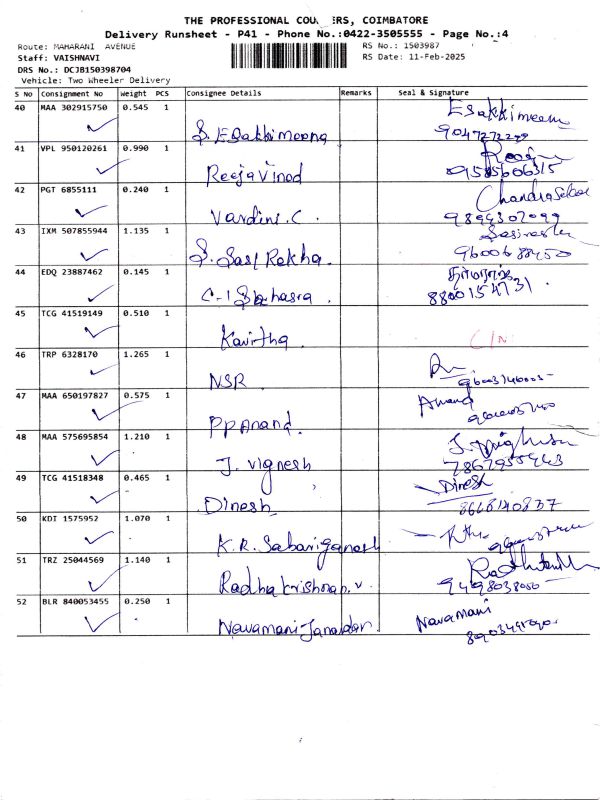 THE PROFESSIONAL COU ERS, COIMBATORE
Delivery Runsheet - P41 - Phone No.:0422-3505555 - Page No.:4
Route: MAHARANI AVENUE
RS No.: 1503987
Staff: VAISHNAVI
RS Date: 11-Feb-2025
DRS No.: DCJB150398704
Vehicle: Two Wheeler Delivery
S No Consignment No Weight PCS Consignee Details Remarks Seal & Signature
40 MAA 302915750 0.545 1
S. Esakkimeena Esakkimeena
9047272299
41 VPL 950120261 0.990 1
Reeja Vinod
9585606315
42 PGT 6855111 0.240 1
Vardini.C.
9894307099
43 IXM 507855944 1.135 1
S. Sasi Rekha.
9600688450
44 EDQ 23887462 0.145 1
8800154731.
45 TCG 41519149 0.510 1
Kavitha C/N
46 TRP 6328170 1.265 1
NSR
47 MAA 650197827 0.575 1
PP Anand. Anand
48 MAA 575695854 1.210 1
J. Vignesh
7867955943
49 TCG 41518348 0.465 1
Dinesh Dinesh
8668140837
50 KDI 1575952 1.070 1
K.R. Sabariganesh
51 TRZ 25044569 1.140 1
Radhakrishnan.v.
9498038050
52 BLR 840053455 0.250 1
Navamani Janardan Navamani